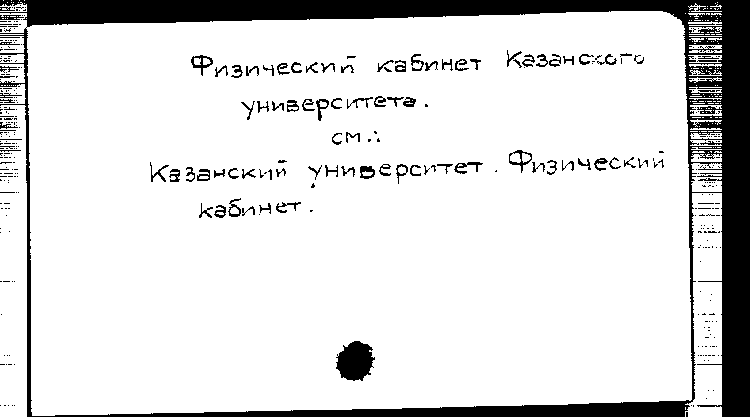 Физический кабинет Казанского
университета.
см.:
Казанский университет. Физический
кабинет.